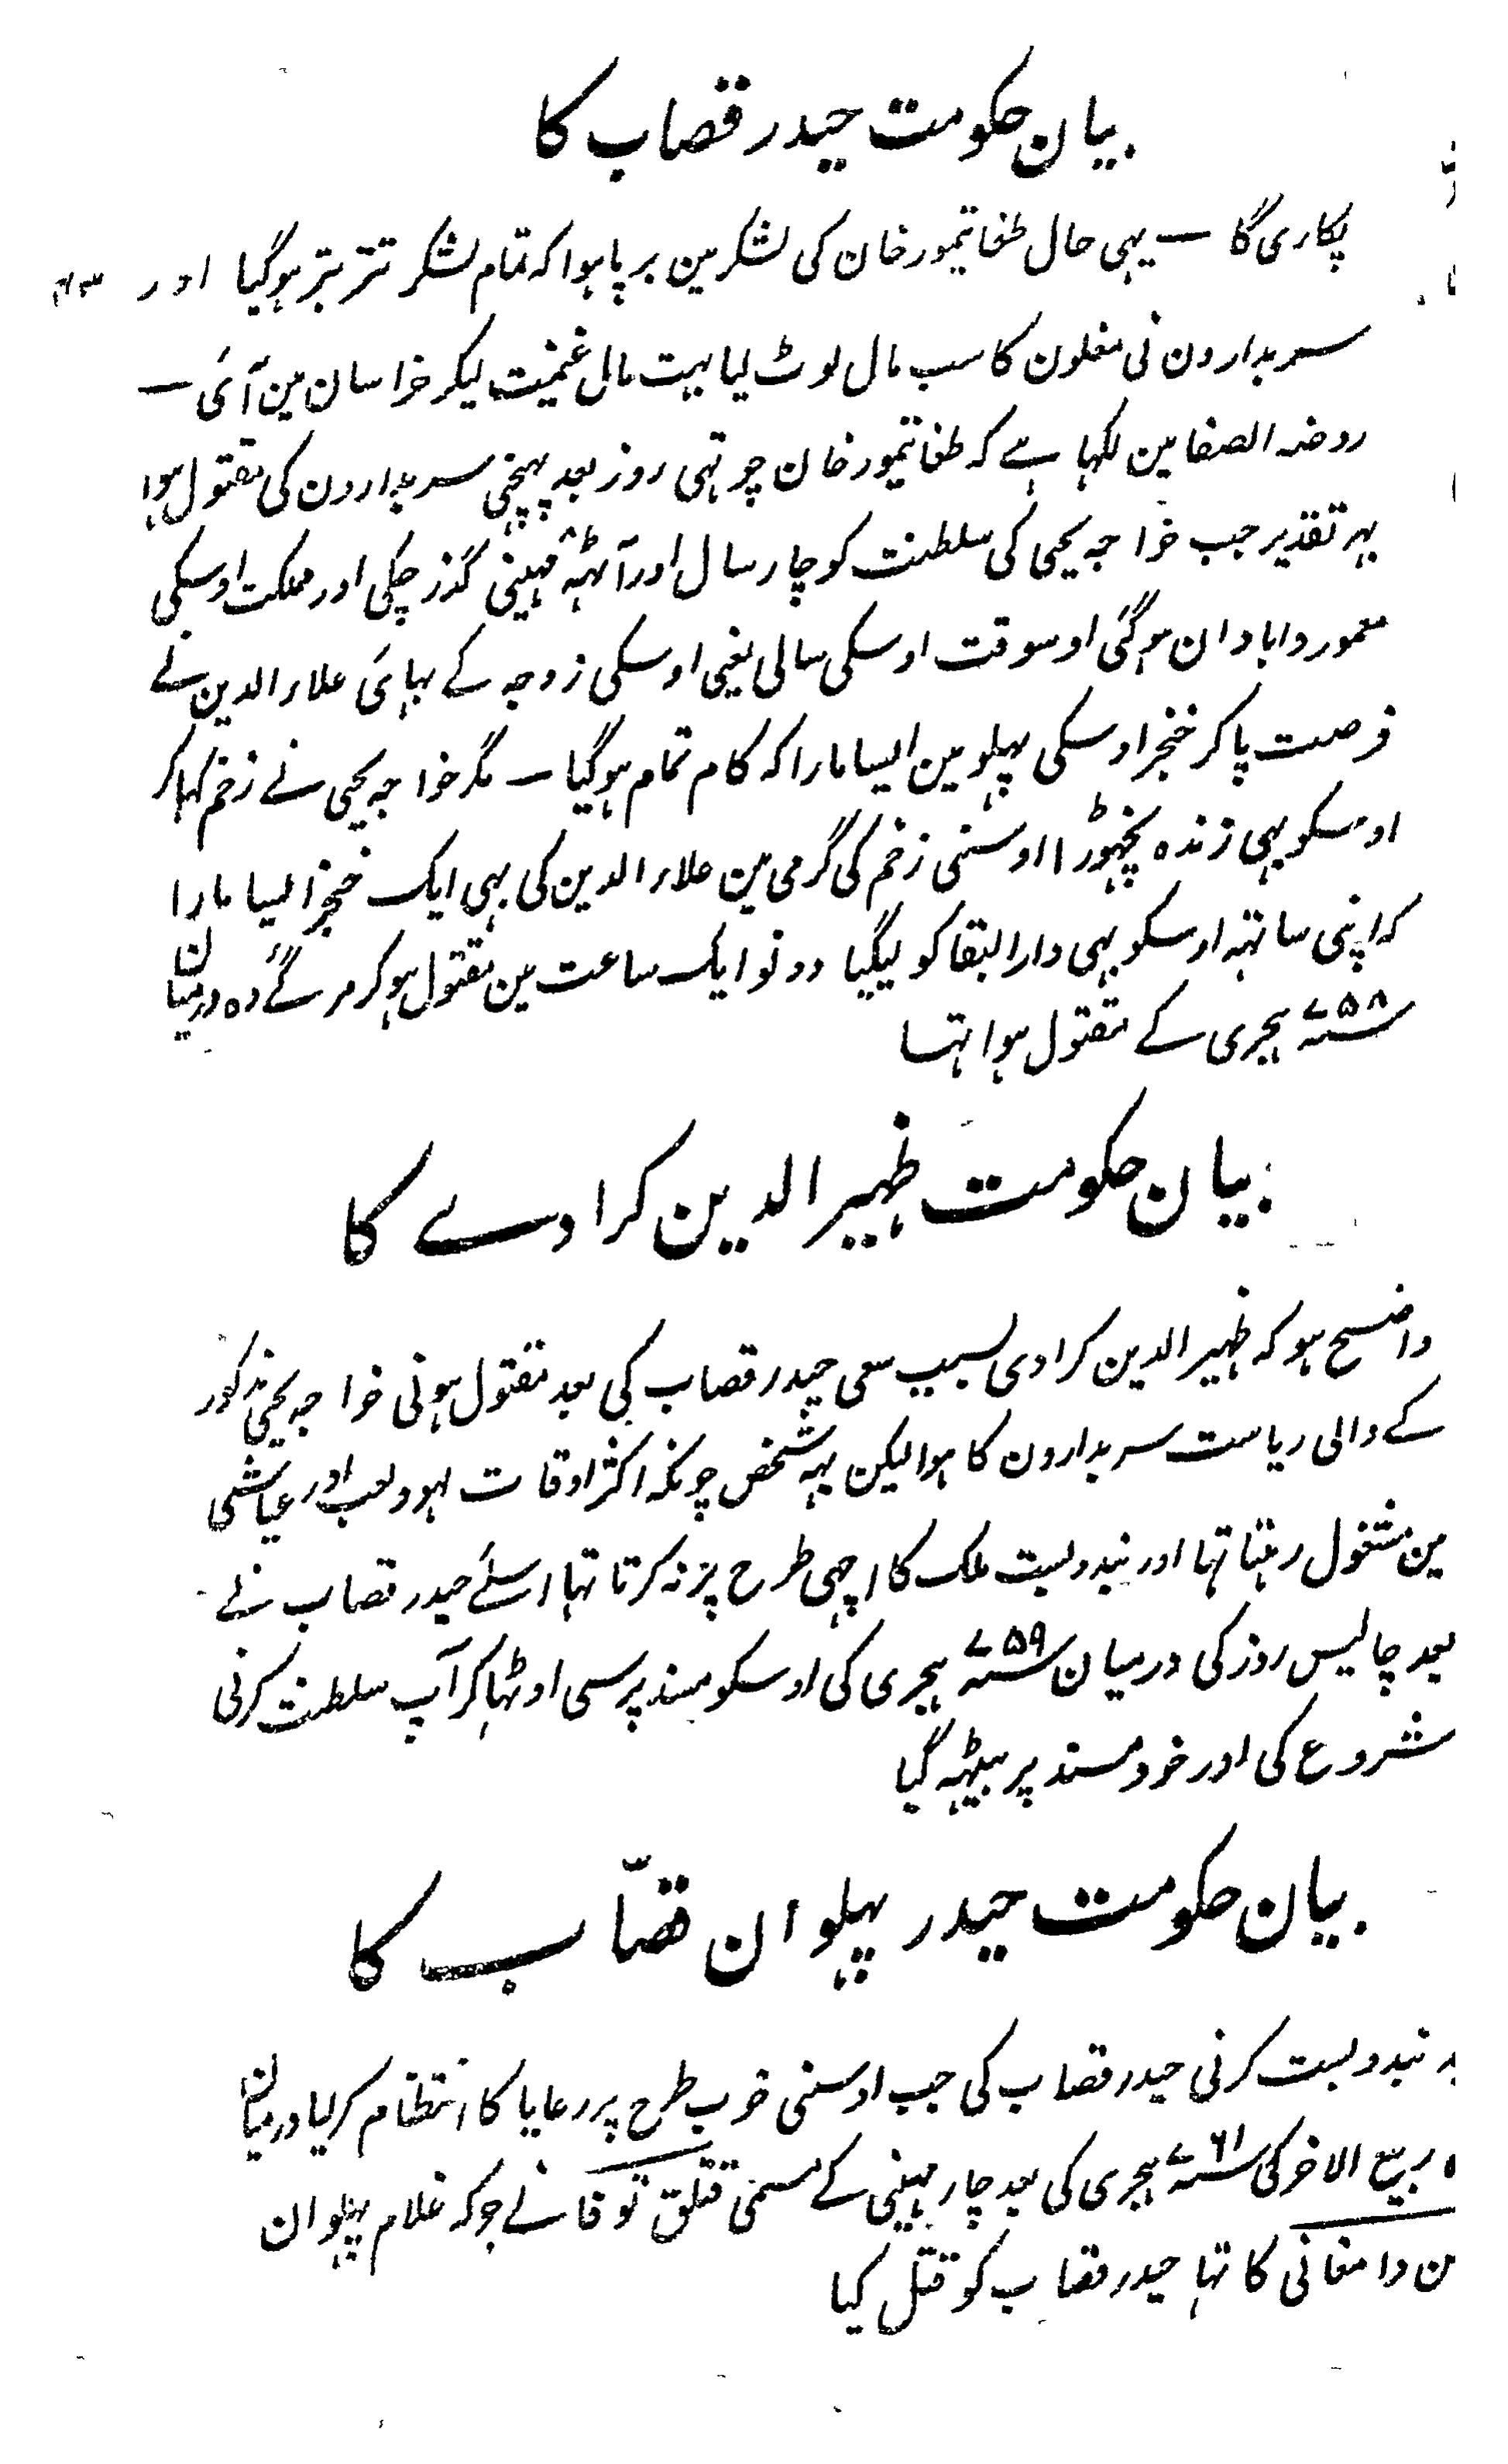 بیان حکومت حیدر قصاب کا
پکاری گا — یہی حال طغا تیمور خان کی لشکر مین برپا ہوا کہ تمام لشکر تتر بتر ہوگیا اور
سربدارون نی مغلون کا سب مال لوٹ لیا بہت مال غنیمت لیکر خراسان مین آئی —
روضہ الصفا مین لکہا ہے کہ طغا تیمور خان چوتہی روز بعد پہچنی سربدارون کی مقتول ہوا
بہر تقدیر جب خواجہ یحیی کی سلطنت کو چار سال اور آٹہہ مہینی گذر چکی اور مملکت اوسکی
معمور و ابادان ہوگئی اوسوقت اوسکی سالی یعنی اوسکی زوجہ کے بہائی علاء الدین نے
فرصت پاکر خنجر اوسکی پہلو مین ایسا مارا کہ کام تمام ہوگیا — مگر خواجہ یحیی نے زخم کہاکر
اوسکو بہی زندہ نچہوڑا اوسنی زخم کی گرمی مین علاء الدین کی بہی ایک خنجر ایسا مارا
کہ اپنی ساتہہ اوسکو بہی دار البقا کو لیگیا دونو ایک ساعت مین مقتول ہوکر مرگئے وہ درمیان
سنہ ۷۵۸ ہجری کے مقتول ہوا تہا
بیان حکومت ظہیر الدین کراوے کا
واضح ہو کہ ظہیر الدین کراوی بسبب سعی حیدر قصاب کی بعد مقتول ہونی خواجہ یحیی مذکور
کے والی ریاست سربدارون کا ہوا لیکن یہہ شخص چونکہ اکثر اوقات لہو ولعب اور عیاشی
مین مشغول رہتا تہا اور بندوبست ملک کا اچہی طرح پر نہ کرتا تہا اسلئے حیدر قصاب نے
بعد چالیس روز کی درمیان سنہ ۷۵۹ ہجری کی اوسکو مسند پر سی اوٹہا کر آپ سلطنت کرنی
شروع کی اور خود مسند پر بیٹہہ گیا
بیان حکومت حیدر پہلوان قصّاب کا
بندوبست کرنی حیدر قصاب کی جب اوسنی خوب طرح پر رعایا کا انتظام کرلیا درمیان
ربیع الاخر کی سنہ ۷۶۱ ہجری کی بعد چار مہینی کے مسمی قتلق توقا نے جو کہ غلام پہلوان
دامغانی کا تہا حیدر قصاب کو قتل کیا